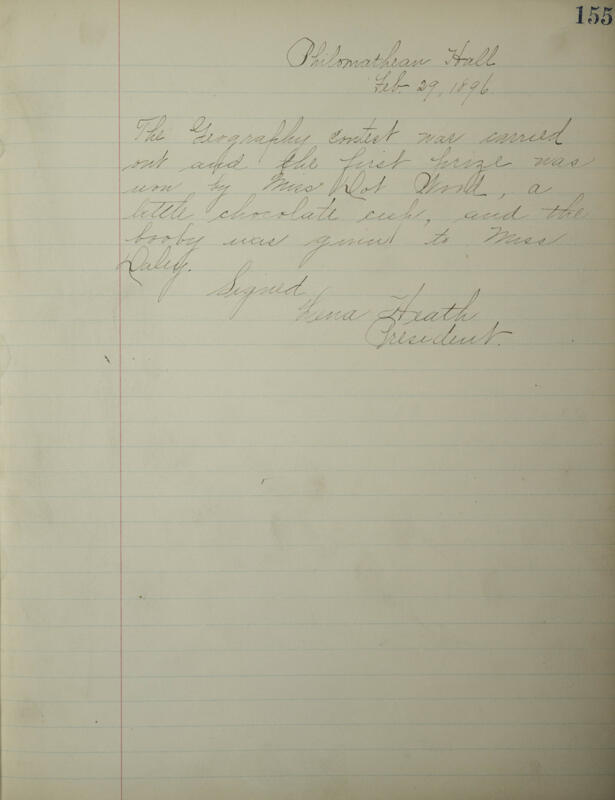 155
Philomathean Hall
Feb. 29, 1896.
The Geography contest was carried
out and the first prize was
won by Miss Dot Wood, a
little chocolate cup, and the
booby was given to Miss
Daley.
Signed
Lena Heath
President.